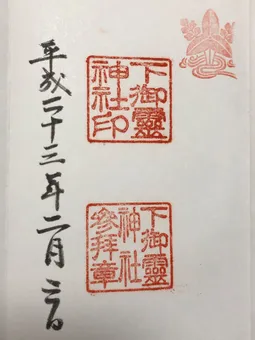 下御靈
神社印
下御靈
神社
参拜章
平成二十三年二月二日